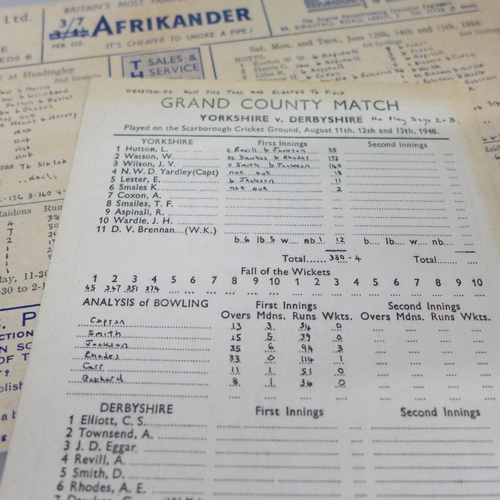 BRITAIN'S MOST
Ltd.
3/7
AFRIKANDER
PER OZ.
IT'S CHEAPER TO SMOKE A PIPE!
EEDS 6
SALES &
SERVICE
Sat. Mon. and Tues., June 12th, 14th and 15th, 1948
at Headingley
DERBYSHIRE WON THE TOSS AND ELECTED TO FIELD
GRAND COUNTY MATCH
YORKSHIRE v. DERBYSHIRE No Play Days 2-3.
Played on the Scarborough Cricket Ground, August 11th, 12th and 13th, 1948.
YORKSHIRE First Innings Second Innings
1 Hutton, L. c Revill b Jackson 25
2 Watson, W. st Dawkes b Rhodes 172
3 Wilson, J. V. c Smith b Jackson
4 N. W. D. Yardley (Capt) not out 18
5 Lester, E. b Jackson 11
6 Smales K. not out 2
7 Coxon, A.
8 Smailes, T. F.
9 Aspinall, R.
10 Wardle, J. H.
11 D. V. Brennan....(W.K.)
b..6 lb 5 w.... nb.1 12 b.... lb.... w.... nb....
Total......380-4 Total......
Fall of the Wickets
1 2 3 4 5 6 7 8 9 10 1 2 3 4 5 6 7 8 9 10
45 347 351 374
ANALYSIS of BOWLING First Innings Second Innings
Overs Mdns. Runs Wkts. Overs Mdns. Runs Wkts.
Copson 13 3 34 0
Smith 15 5 39 0
Jackson 35 6 94 3
Rhodes 33 0 114 1
Carr 11 1 51 0
Oakland 8 1 36 0
DERBYSHIRE First Innings Second Innings
1 Elliott, C. S.
2 Townsend, A.
3 J. D. Eggar
4 Revill, A.
5 Smith, D.
6 Rhodes, A. E.